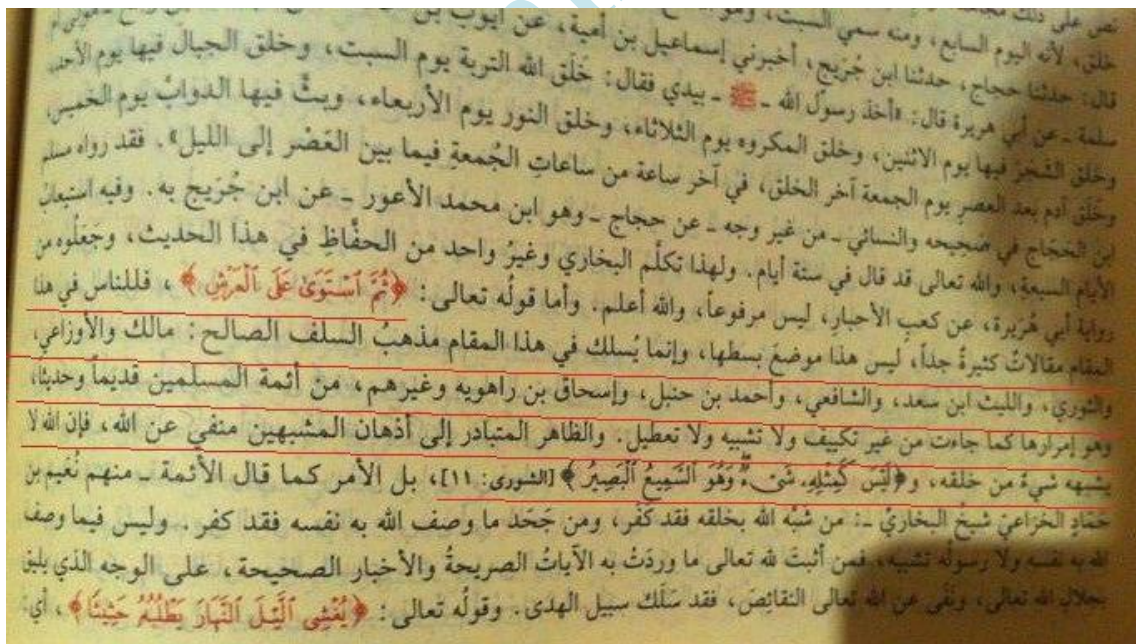 نص على ذلك
خلق، لأنه اليوم السابع، ومنه سمي السبت، وهو
قال: حدثنا حجاج، حدثنا ابن جُرَيج، أخبرني إسماعيل بن أمية، عن أيوب بن
سلمة ـ عن أبي هريرة قال: «أخذ رسول الله ـ ﷺ ـ بيدي فقال: خَلَق الله التربة يوم السبت، وخلق الجبال فيها يوم الأحد،
وخلق الشجرَ فيها يوم الاثنين، وخلق المكروه يوم الثلاثاء، وخلق النور يوم الأربعاء، وبثَّ فيها الدوابَّ يوم الخميس،
وخَلَق آدم بعد العصرِ يوم الجمعة آخر الخلق، في آخر ساعة من ساعاتِ الجُمعةِ فيما بين العَصْر إلى الليل». فقد رواه مسلم
ابن الحَجّاج في صحيحه والنسائي ـ من غير وجه ـ عن حجاج ـ وهو ابن محمد الأعور ـ عن ابن جُرَيج به. وفيه استيعابُ
الأيام السبعةِ، والله تعالى قد قال في ستة أيام. ولهذا تكلَّم البخاري وغيرُ واحد من الحفَّاظِ في هذا الحديث، وجَعَلُوه من
رواية أبي هُرَيرة، عن كعبِ الأحبارِ، ليس مرفوعاً، والله أعلم. وأما قولُه تعالى: ﴿ثُمَّ ٱسْتَوَىٰ عَلَى ٱلْعَرْشِ﴾، فللناس في هذا
المقام مقالاتٌ كثيرةٌ جداً، ليس هذا موضعَ بسطها، وإنما يُسلك في هذا المقام مذهبُ السلف الصالح: مالك والأوزاعي،
والثوري، والليث ابن سعد، والشافعي، وأحمد بن حنبل، وإسحاق بن راهويه وغيرهم، من أئمة المسلمين قديماً وحديثاً،
وهو إمرارها كما جاءت من غير تكييف ولا تشبيه ولا تعطيل. والظاهر المتبادر إلى أذهان المشبهين منفي عن الله، فإن الله لا
يشبهه شيءٌ من خلقه، و﴿لَيْسَ كَمِثْلِهِۦ شَىْءٌ وَهُوَ ٱلسَّمِيعُ ٱلْبَصِيرُ﴾ [الشورى: ١١]، بل الأمر كما قال الأئمة ـ منهم نُعَيم بن
حَمّادٍ الخزاعيّ شيخُ البخاريّ ـ: من شبَّه الله بخلقه فقد كَفَر، ومن جَحَد ما وصف الله به نفسه فقد كفر. وليس فيما وصف
الله به نفسه ولا رسولُه تشبيه، فمن أثبتَ لله تعالى ما وردَتْ به الآياتُ الصريحةُ والأخبار الصحيحة، على الوجه الذي يليق
بجلالِ الله تعالى، ونَفَى عن الله تَعالى النقائِصَ، فقد سَلَك سبيل الهدى. وقولُه تعالى: ﴿يُغْشِى ٱلَّيْلَ ٱلنَّهَارَ يَطْلُبُهُۥ حَثِيثًا﴾، أي: